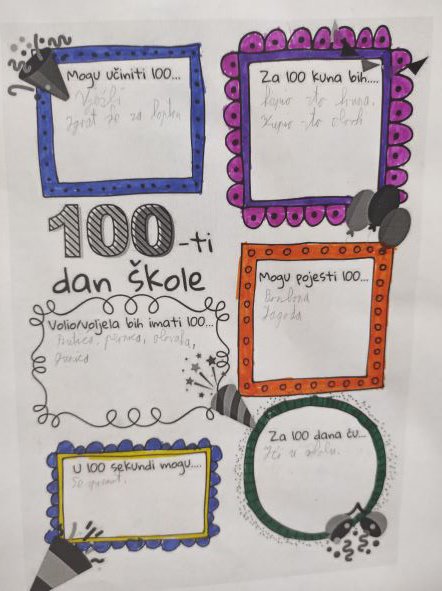 Mogu učiniti 100...
Vježbi
Igrat se za
Za 100 kuna bih....
kupio sto kuna.
Kupio sto
100-ti
dan škole
Mogu pojesti 100...
Bonbona
Jagoda
Volio/voljela bih imati 100...
Kutica, pernica, olovaka,
Za 100 dana ću...
Ići u školu.
U 100 sekundi mogu....
Se spremit.